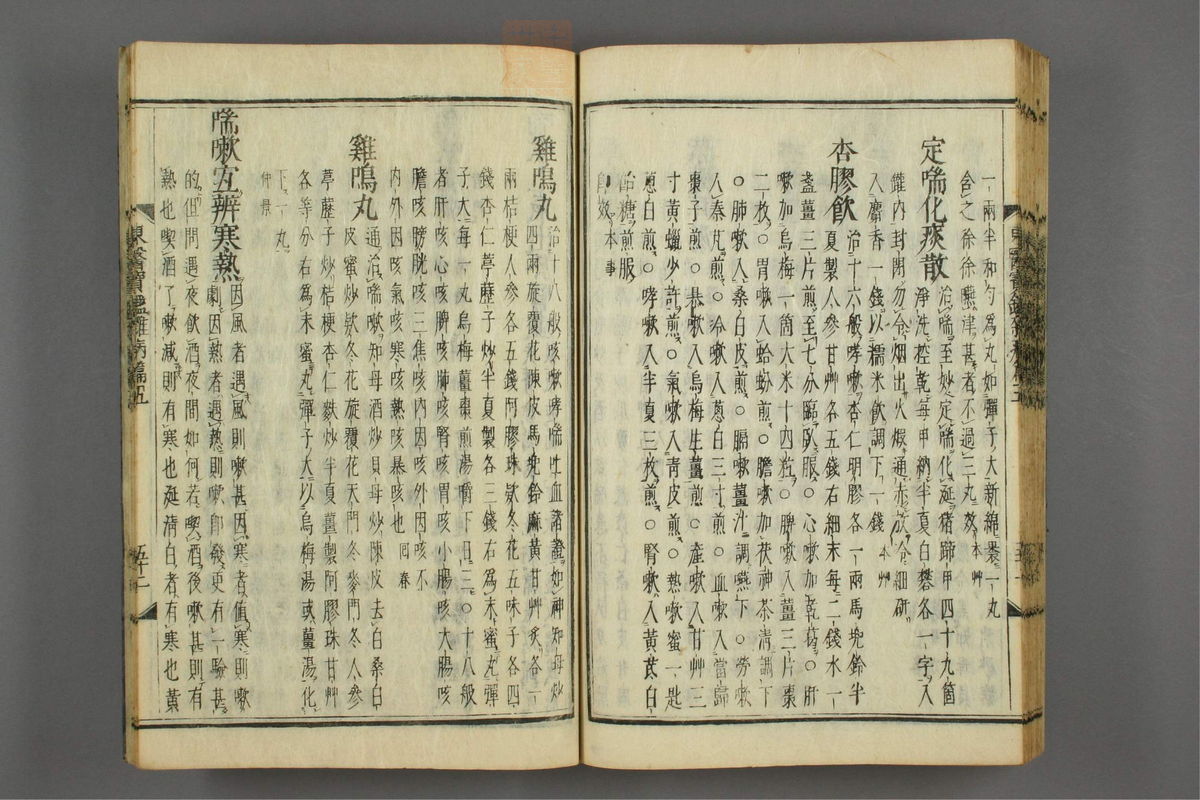 一兩半和勻爲丸如彈子大新綿裹一丸
含之徐徐嚥津甚者不過三丸效本艸
定喘化痰散治喘至妙定喘化涎猪蹄甲四十九箇
淨洗控乾每甲納半夏白礬各一字入
罐內封閉勿令烟出火煆通赤放冷細硏
入麝香一錢以糯米飮調下一錢本艸
杏膠飮治十六般哮嗽杏仁明膠各一兩馬兜鈴半
夏製人參甘艸各五錢右細末每二錢水一
盞薑三片煎至七分臨臥服○心嗽加乾葛○肝
嗽加烏梅一箇大米十四粒○脾嗽入薑三片棗
二枚○胃嗽入蛤蚧煎○膽嗽加茯神茶淸調下
○肺嗽入桑白皮煎○膈嗽薑汁調嚥下○勞嗽
入秦艽煎○冷嗽入葱白三寸煎○血嗽入當歸
棗子煎○暴嗽入烏梅生薑煎○產嗽入甘艸三
寸黃蠟少許煎○氣嗽入靑皮煎○熱嗽蜜一匙
葱白煎○哮嗽入半夏三枚煎○腎嗽入黃芪白
飴糖煎服
卽效本事
雞鳴丸治十八般咳嗽哮喘吐血諸證如神知母炒
四兩旋覆花陳皮馬兜鈴麻黃甘艸炙各一
兩桔梗人參各五錢阿膠珠款冬花五味子各四
錢杏仁葶藶子炒半夏製各三錢右爲末蜜丸彈
子大每一丸烏梅薑棗煎湯嚼下日二○十八般
者肝咳心咳脾咳肺咳腎咳胃咳小腸咳大腸咳
膽咳膀胱咳三焦咳內因咳外因咳不
內外因咳氣咳寒咳熱咳暴咳也回春
雞鳴丸通治喘嗽知母酒炒貝母炒陳皮去白桑白
皮蜜炒款冬花旋覆花天門冬麥門冬人參
葶藶子炒桔梗杏仁麩炒半夏薑製阿膠珠甘艸
各等分右爲末蜜丸彈子大以烏梅湯或薑湯化
下一丸
仲景
喘嗽宜辨寒熱因風者遇風則嗽甚因寒者値寒則嗽
劇因熱者遇熱則嗽卽發更有一驗甚
的但問遇夜飮酒夜間如何若喫酒後嗽甚則有
熱也喫酒了嗽減則有寒也涎淸白者有寒也黃
東醫寶鑑雜病篇五
五十二